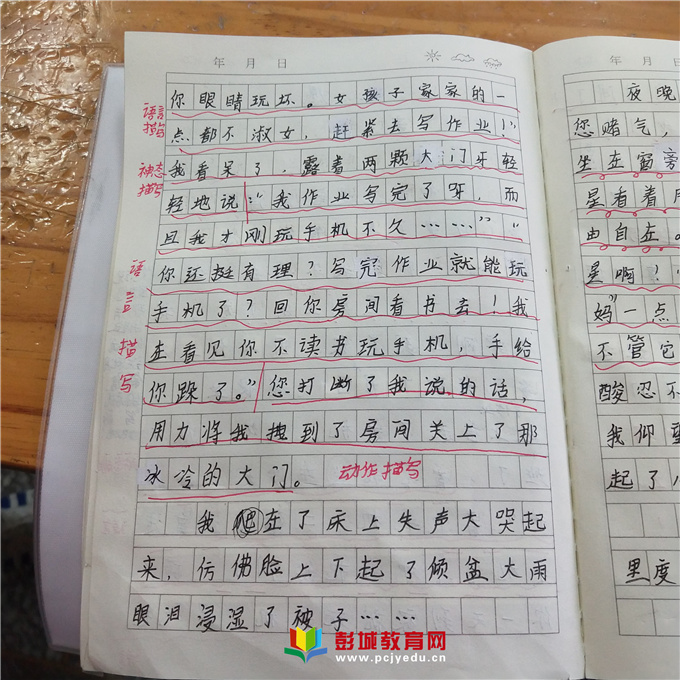 年 月 日
你眼睛玩坏。女孩子家家的一
点都不淑女，赶紧去写作业！”
我看呆了，露着两颗大门牙轻
轻地说：“我作业写完了呀，而
且我才刚玩手机不久……”“
你还挺有理？写完作业就能玩
手机了？回你房间看书去！我
在看见你不读书玩手机，手给
你跺了。”您打断了我说的话，
用力将我拽到了房间关上了那
冰冷的大门。
我爬在了床上失声大哭起
来，仿佛脸上下起了倾盆大雨
眼泪浸湿了被子……
语言描写
神态描写
语言描写
动作描写
年 月 日
夜晚
您赌气，
坐在窗旁
星看着月
由自在。
是啊！
妈”一点
不管它
酸忍不
我仰望
起了
里度
彭城教育网
www.pcjyedu.cn